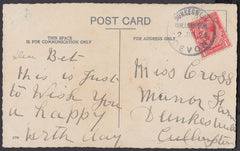 POST CARD
THIS SPACE
IS FOR COMMUNICATION ONLY.
FOR ADDRESS ONLY.
DEVON
Dear Bet
this is just
to wish you
a happy
birth day
Miss Cross
Manor Farm
Dunkeswell
Cullompton